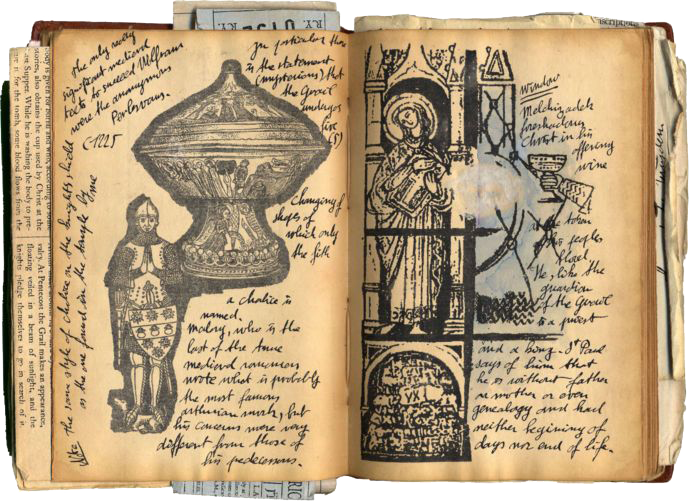 The only really
significant medieval
texts to succeed Wolfram
were the anonymous
Perlesvaus.
C 1225
In particular there
is the statement
(mysterious) that
the Grail
undergoes
five
(5)
Changing of
shapes of
which only
the fifth
a chalice is
named.
Malory, who is the
last of the true
medieval romancers
wrote what is probably
the most famous
arthurian work, but
his concerns were very
different from those of
his predecessors.
Note the same style of chalice on the knights shield
as the one found in the temple by me
body is given for burial and who, according to some
stories, also obtains the cup used by Christ at the
Last Supper. While he is washing the body to pre-
it for the tomb, some blood flows from the
valry. At Pentecost the Grail makes an appearance,
floating veiled in a beam of sunlight, and the
knights pledge themselves to go in search of it
window
Melchizadek
foreshadows
Christ in his
offering
wine
as the token
of his peoples
blood
He is like the
guardian
of the Grail
is a priest
and a king. St Paul
says of him that
he is without father
or mother or even
genealogy and had
neither begining of
days nor end of life.